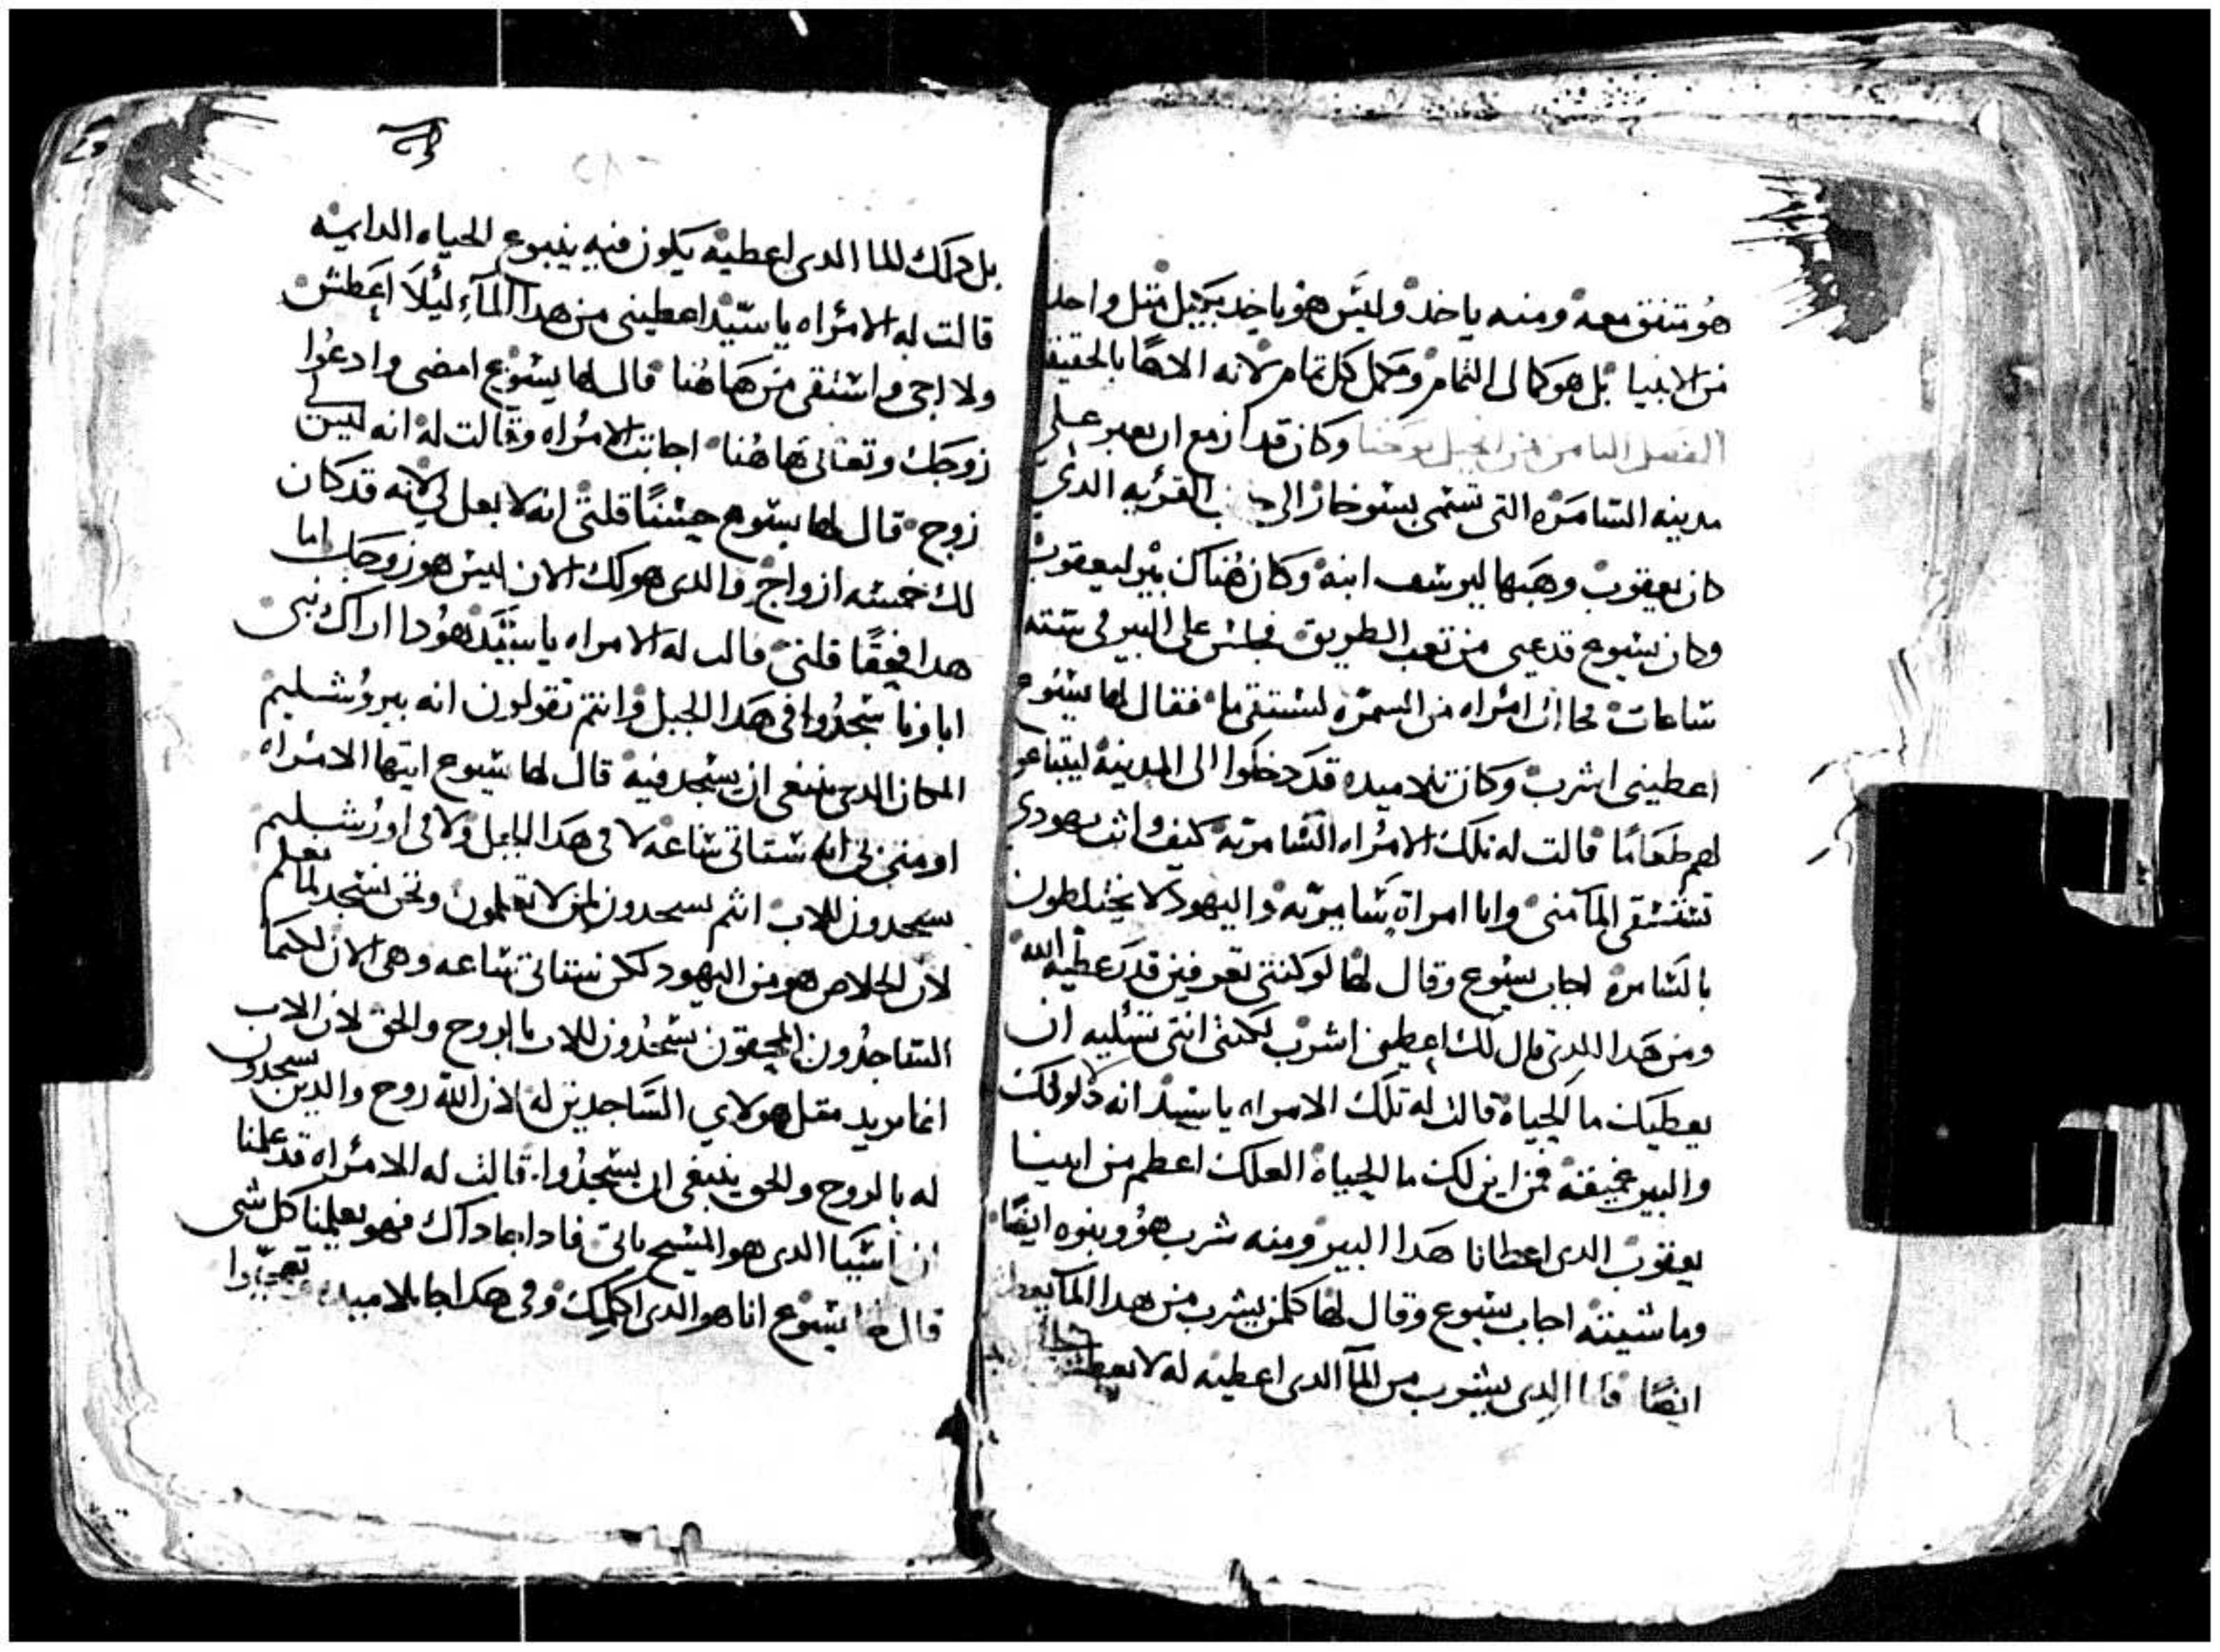 هو متفق معه ومنه ياخد وليس هو ياخد بكيل متل واحد
من الانبيا بل هو كمالى التمام ومكمل كل تمام لانه الاها بالحقيقة
الفصل التامن من انجيل يوحنا وكان قد ازمع ان يعبر على
مدينه السامره التى تسمى بسوخار الى القريه الدى
كان يعقوب وهبها ليوسف ابنه وكان هناك بير ليعقوب
وكان يسوع قد عيى من تعب الطريق فجلس على البير فى ستته
ساعات فجاات امراه من السمره لتستقى ما فقال لها يسوع
اعطينى اشرب وكان تلاميده قد دخلوا الى المدينة ليبتاعو
لهم طعاما قالت له تلك الامراه السامريه كيف وانت يهودى
تستسقى الما منى وانا امراة سامريه واليهود لا يختلطون
بالسامرة اجاب يسوع وقال لها لو كنتى تعرفين قدر عطية الله
ومن هدا الدى قال لك اعطينى اشرب لكنتى انتى تسليه ان
يعطيك ما الحياة قالت له تلك الامراه يا سيد انه لا دلو لك
والبير عميقة فمن اين لك ما الحياة العلك اعظم من ابينا
يعقوب الدى اعطانا هدا البير ومنه شرب هو وبنوه ايضا
وماشيته اجاب يسوع وقال لها كلمن يشرب من هدا الما يعطش
ايضا فاما الدى يشرب من الما الدى اعطيه له لا يعطش
بل دلك الما الدى اعطيه يكون فيه ينبوع الحياه الدايمه
قالت له الامراه يا سيد اعطينى من هدا المآء ليلا اعطش
ولا اجى واستقى من هاهنا قال لها يسوع امضى وادعوا
زوجك وتعالى هاهنا اجابت الامراه وقالت له انه ليس لى
زوج قال لها يسوع حسنا قلتى انه لا بعل لى لانه قد كان
لك خمسه ازواج والدى هو لك الان ليس هو زوجك اما
هدا فحقا قلتى قالت له الامراه يا سيد هودا اراك نبى
اباونا سجدوا فى هدا الجبل وانتم تقولون انه بيروشليم
المكان الدى ينبغى ان يسجد فيه قال لها يسوع ايتها الامراه
اومنى بى انه ستاتى ساعه لا فى هدا الجبل ولا فى اورشليم
تسجدون للاب انتم تسجدون لمن لا تعلمون ونحن نسجد لما نعلم
لان الخلاص هو من اليهود لكن ستاتى ساعه وهى الان لكيما
الساجدون المحيقون يسجدون للاب بالروح والحق لان الاب
انما يريد متل هولاي الساجدين له لان الله روح والدين يسجدون
له بالروح والحق ينبغى ان يسجدوا قالت له الامراه قد علمنا
ان ماسيا الدى هو المسيح ياتى فادا جا داك فهو يعلمنا كل شى
قال لها يسوع انا هو الدى اكلمك وفى هدا جا تلاميده وتعجبوا